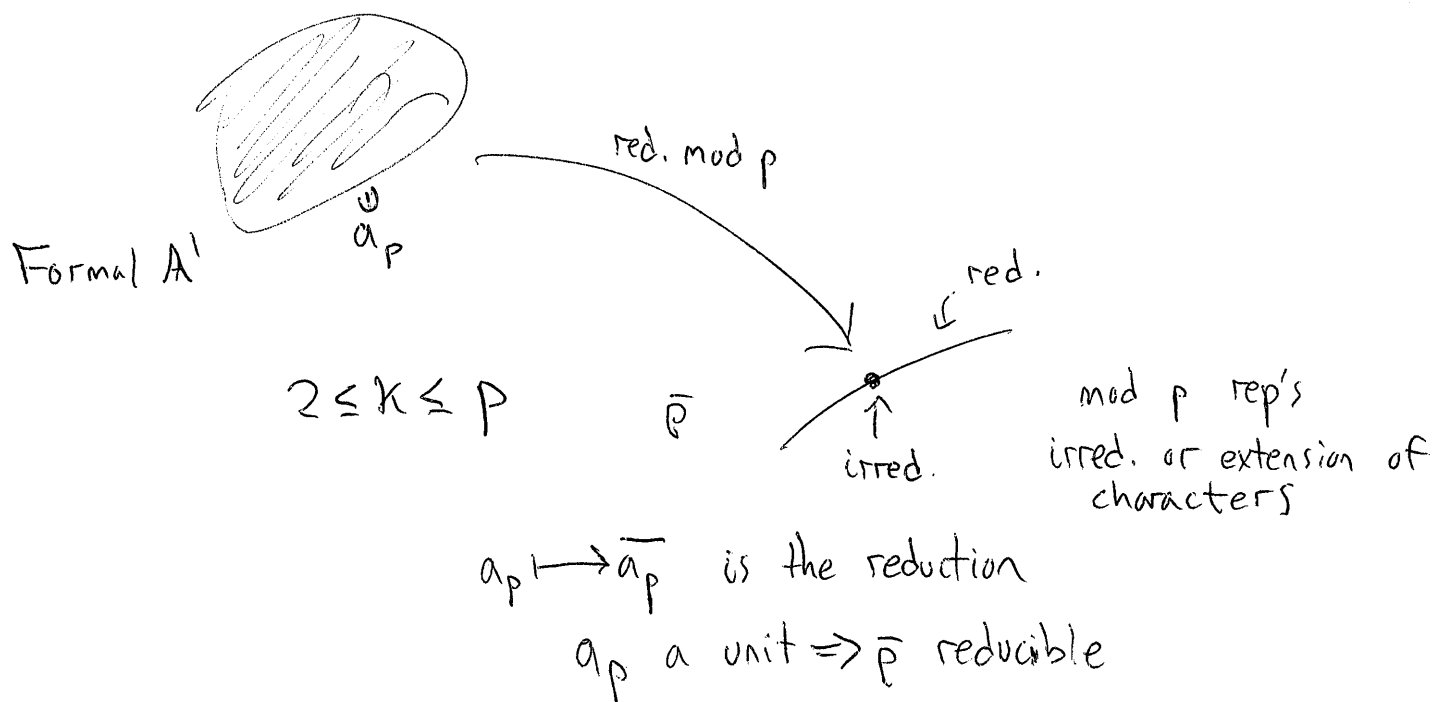 red. mod p
a_p
Formal A'
red.
2 ≤ k ≤ p
ρ̄
irred.
mod p rep's
irred. or extension of
characters
a_p ↦ \overline{a_p} is the reduction
a_p a unit => ρ̄ reducible